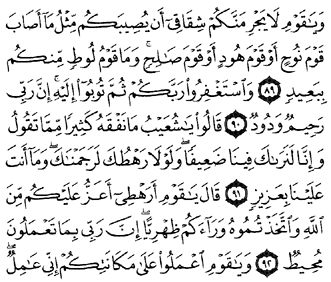 وَيَٰقَوْمِ لَا يَجْرِمَنَّكُمْ شِقَاقِىٓ أَن يُصِيبَكُم مِّثْلُ مَآ أَصَابَ
قَوْمَ نُوحٍ أَوْ قَوْمَ هُودٍ أَوْ قَوْمَ صَٰلِحٍ ۚ وَمَا قَوْمُ لُوطٍ مِّنكُم
بِبَعِيدٍ ٨٩ وَٱسْتَغْفِرُوا۟ رَبَّكُمْ ثُمَّ تُوبُوٓا۟ إِلَيْهِ ۚ إِنَّ رَبِّى
رَحِيمٌ وَدُودٌ ٩٠ قَالُوا۟ يَٰشُعَيْبُ مَا نَفْقَهُ كَثِيرًا مِّمَّا تَقُولُ
وَإِنَّا لَنَرَىٰكَ فِينَا ضَعِيفًا ۖ وَلَوْلَا رَهْطُكَ لَرَجَمْنَٰكَ ۖ وَمَآ أَنتَ
عَلَيْنَا بِعَزِيزٍ ٩١ قَالَ يَٰقَوْمِ أَرَهْطِىٓ أَعَزُّ عَلَيْكُم مِّنَ
ٱللَّهِ وَٱتَّخَذْتُمُوهُ وَرَآءَكُمْ ظِهْرِيًّا ۖ إِنَّ رَبِّى بِمَا تَعْمَلُونَ
مُحِيطٌ ٩٢ وَيَٰقَوْمِ ٱعْمَلُوا۟ عَلَىٰ مَكَانَتِكُمْ إِنِّى عَٰمِلٌ ۖ